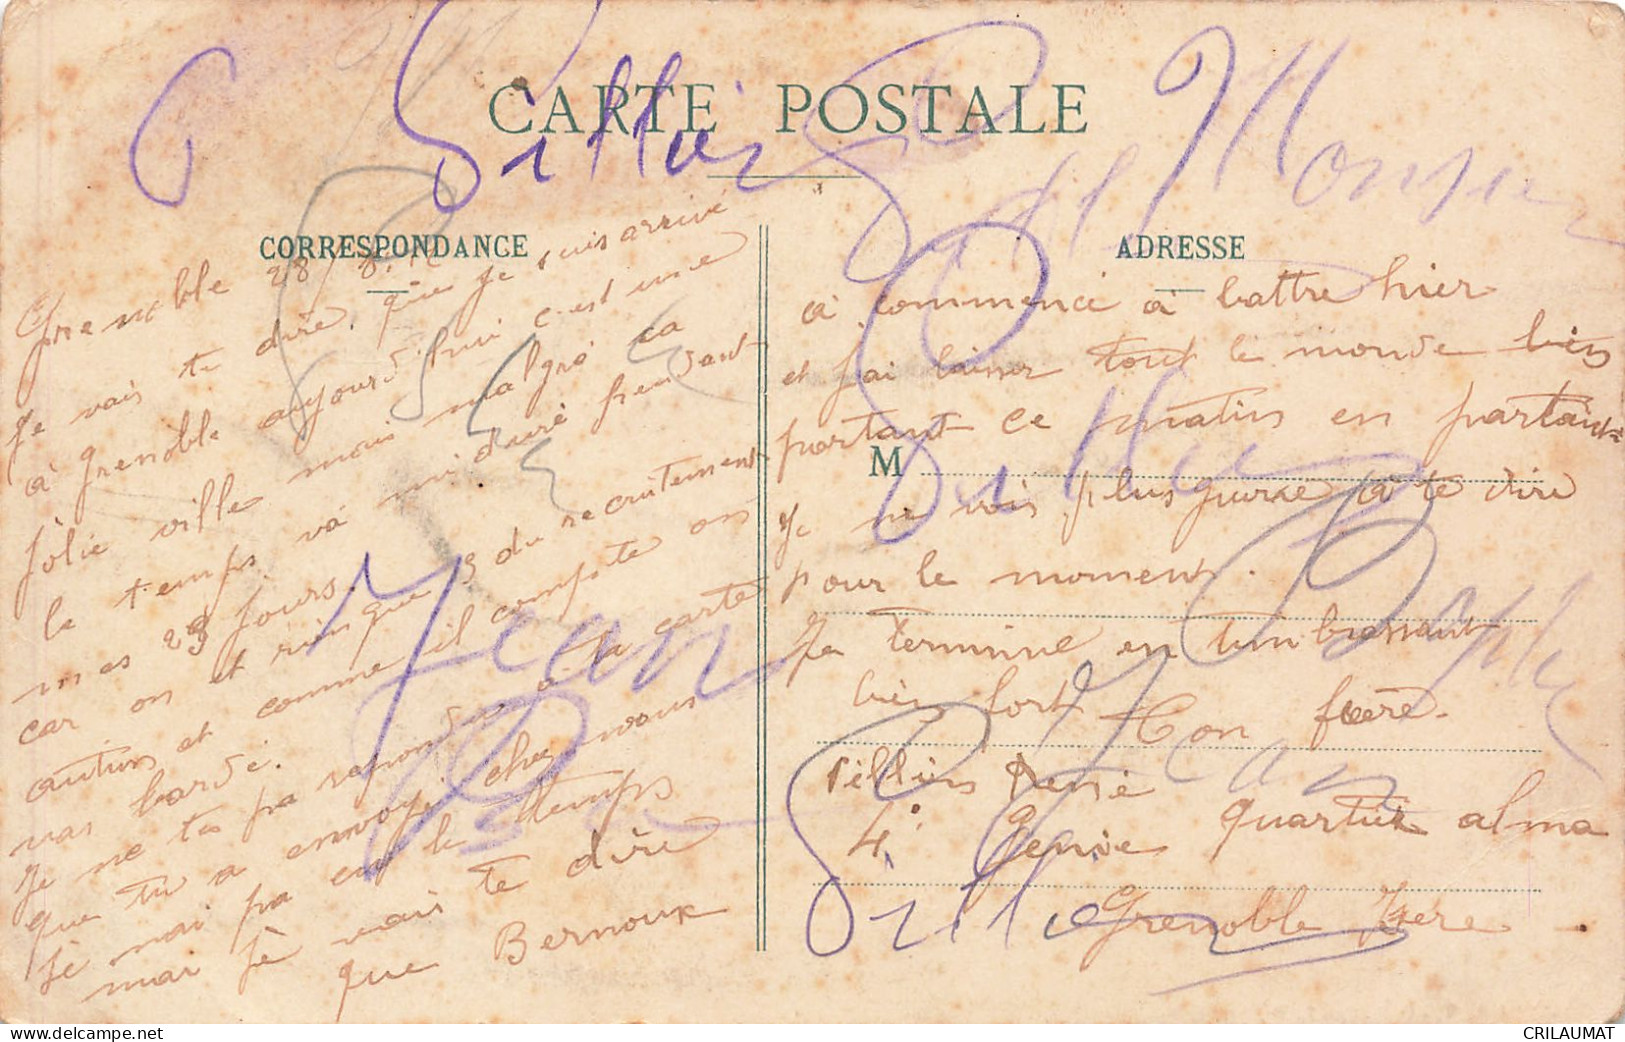 CARTE POSTALE
CORRESPONDANCE
ADRESSE
Grenoble 28/8.12
Je vais te dire que je suis arrivé
à Grenoble aujourd'hui c'est une
jolie ville mais malgré ca
le temps va mi duré pendant
mes 23 jours.
car on et rien que 9 du recrutement
autins et comme il compte on
vas bardé.
Je ne tes pa repondu a ta carte
que tu a envoyé chez nous
Je mai pa eut le temps
mai je vais te dire
que Bernoux
a commencé à battre hier
et j'ai laisser tout le monde bien
portant ce matin en partant
M
Je ne vois plus guerre à te dire
pour le moment.
Je termine en tembrassant
bien fort Ton frère.
Pillins René
4e Genie Quartier alma
Grenoble Isère
Pillin
Monsieur
Jean
Pillin
Jean
Pillin
CRILAUMAT